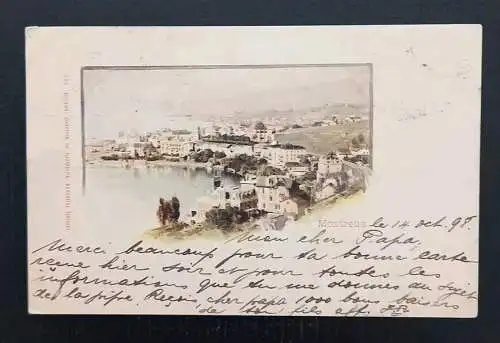 Montreux le 14 oct. 98.
Mon cher Papa
Merci beaucoup pour ta bonne carte
reçue hier soir et pour toutes les
informations que tu me donnes au sujet
de la pipe. Reçois, cher papa 1000 bons baisers
de ton fils aff.